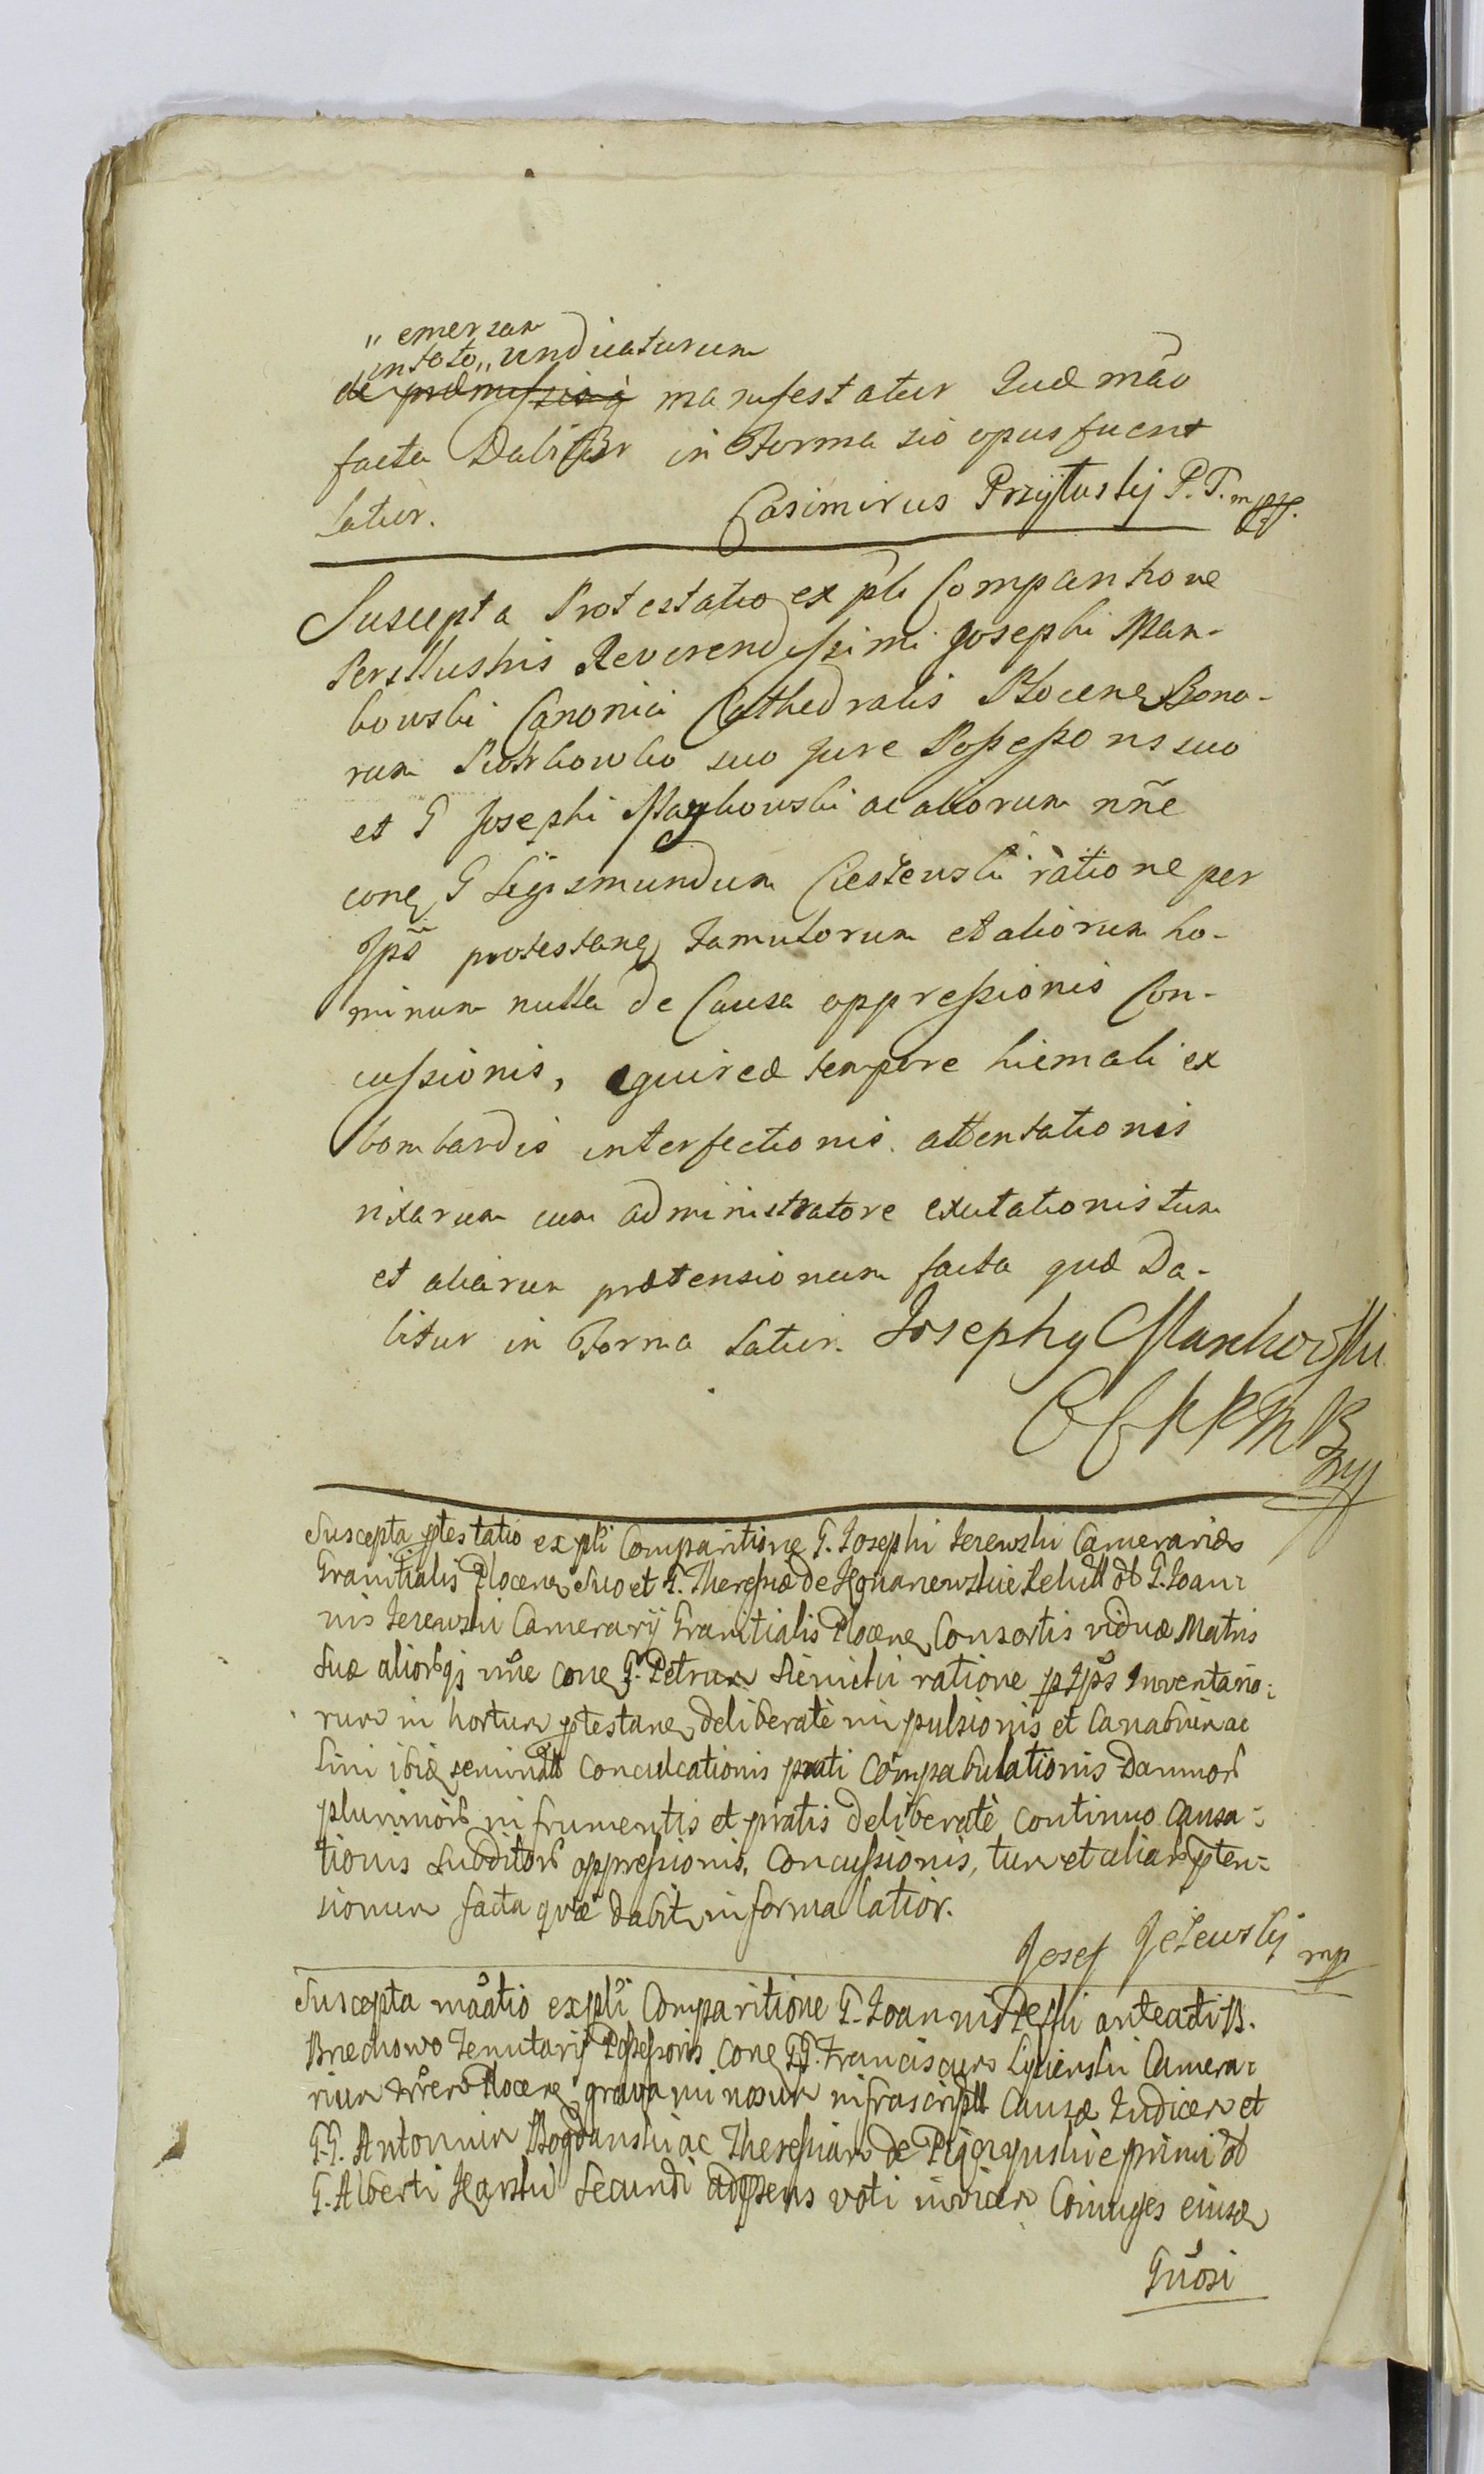 " emersam
in toto " vindicaturum
de præmissis manifestatur Quæ mão
facta Dabitur in Forma sio opus fuerit
Latiùr. Casimirus Przytuskij P. T. mpp.
Suscepta Protestatio ex pti Comparitione
Perillustris Reverendissimi Josephi Man-
kowski Canonici Cathedralis Plocen Bono-
rum suo Jure Possessoris suo
et G Josephi Mankowski ac aliorum nñe
cone G Sigismundum ratione per
Jps̃ protestane Famulorum et aliorum ho-
minum nulla de Causa oppressionis Con-
cussionis, tempore hiemali ex
bombardis interfectionis attentationis
rixarum cum administratore excitationis tum
et aliarum prætensionum facta quæ Da-
bitur in Forma Latiùr. Josephq Mankowski
C C P P M P mpp
Suscepta ptestatio ex pti Comparitione G. Josephi Jezewski Camerarid
Granitialis Plocen suo et G. Theressiæ de G. Joan-
nis Jezewski Camerarij Granitialis Plocen Consortis viduæ Matris
suæ aliorbqj nñe cone G. Petrum Sienicki ratione p Jps Inventario-
rum in hortum ptestane deliberatè impulsionis et Canabum ac
Lini ibid seminatt Conculcationis prati Compabulationis Damnorb
plurimorb in frumentis et pratis deliberatè continuo causa-
tionis subditorb oppressionis, Concussionis, tum et aliarb pten-
sionum facta quæ dabit in forma latior.
Josef Jeżewskij mp
Suscepta mãatio ex pti Comparitione G. Joannis anteacti B.
Brechowo Tenutarij Possessoris cone GG. Franciscum Camera-
rium Plocen gravaminosum infrascriptt Causæ Judicem et
G.G. Antonium Bogdanski ac Theressiam de primi
G. Alberti secundi voti invicem Coniuges eiusd
Gñosi